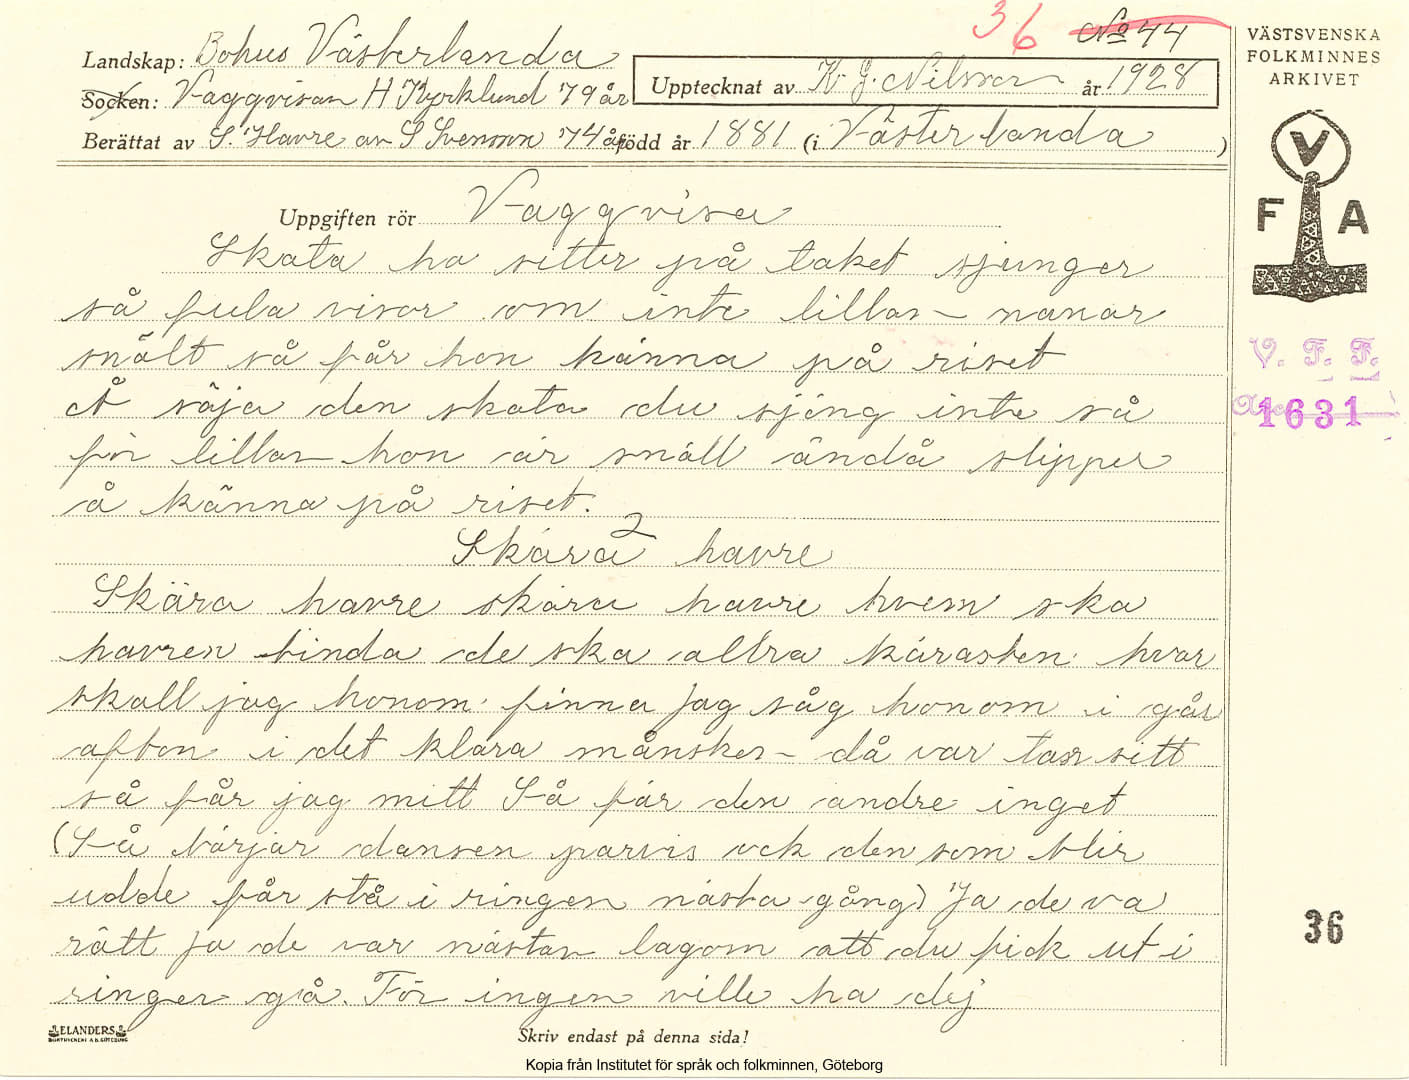 36 No 44
Landskap: Bohus Västerlanda
Socken: Vaggvisan H Kyrklund 79 år
Upptecknat av K. J. Nilsson år 1928
Berättat av S. Havre av S Svensson 74 år född år 1881 (i Västerlanda )
Uppgiften rör Vaggvisa
Skata ho sitter på taket sjunger
så fula visor om inte lillan nanar
snält så får hon känna på riset
Å säja den skata du sjöng inte så
för lillan hon är snäll ändå slipper
å känna på riset.
2
Skära havre
Skära havre skära havre hvem ska
havren binda de ska allra kärasten hvar
skall jag honom finna Jag såg honom i går
afton i det klara månsken då var tar sitt
så får jag mitt Så får den andre inget
(Så börjar dansen parvis ock den som blir
udde får stå i ringen nästa gång) Ja de va
rätt Ja de var nästan lagom att du fick ut i
ringen gå. För ingen ville ha dej
ELANDERS
BOKTRYCKERI A.B. GÖTEBORG
Skriv endast på denna sida!
Kopia från Institutet för språk och folkminnen, Göteborg
VÄSTSVENSKA
FOLKMINNES
ARKIVET
V
F A
V. F. F.
1631
36